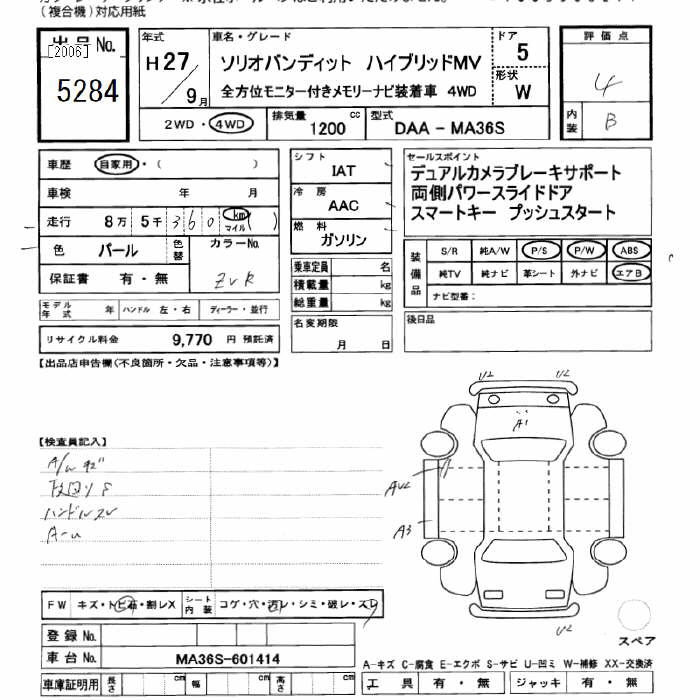 (複合機)対応用紙
出品No.
[2006]
5284
年式
H27/9月
車名・グレード
ソリオバンディット ハイブリッドMV
全方位モニター付きメモリーナビ装着車 4WD
ドア
5
形状
W
評価点
4
内装
B
2WD・4WD
排気量
1200 cc
型式
DAA-MA36S
車歴
自家用・( )
車検 年 月
走行 8万 5千 360 km マイル ( )
色 パール 色替 カラーNo.
ZVR
保証書 有・無
モデル年式 年 ハンドル 左・右 ディーラー・並行
リサイクル料金 9,770 円 預託済
シフト
IAT
冷房
AAC
燃料
ガソリン
乗車定員 名
積載量 kg
総重量 kg
名変期限
月 日
セールスポイント
デュアルカメラブレーキサポート
両側パワースライドドア
スマートキー プッシュスタート
装備品
S/R 純A/W P/S P/W ABS
純TV 純ナビ 革シート 外ナビ エアB
ナビ型番:
後日品
【出品店申告欄(不良箇所・欠品・注意事項等)】
【検査員記入】
ハンドル
A-u
U2 U2
A1
A3
U2
FW キズ・トビ石・割レX シート内装 コゲ・穴・汚レ・シミ・破レ・スレ
登録No.
車台No. MA36S-601414
車庫証明用 長さ cm 幅 cm 高さ cm
スペア
A-キズ C-腐食 E-エクボ S-サビ U-凹ミ W-補修 XX-交換済
工具 有・無 ジャッキ 有・無